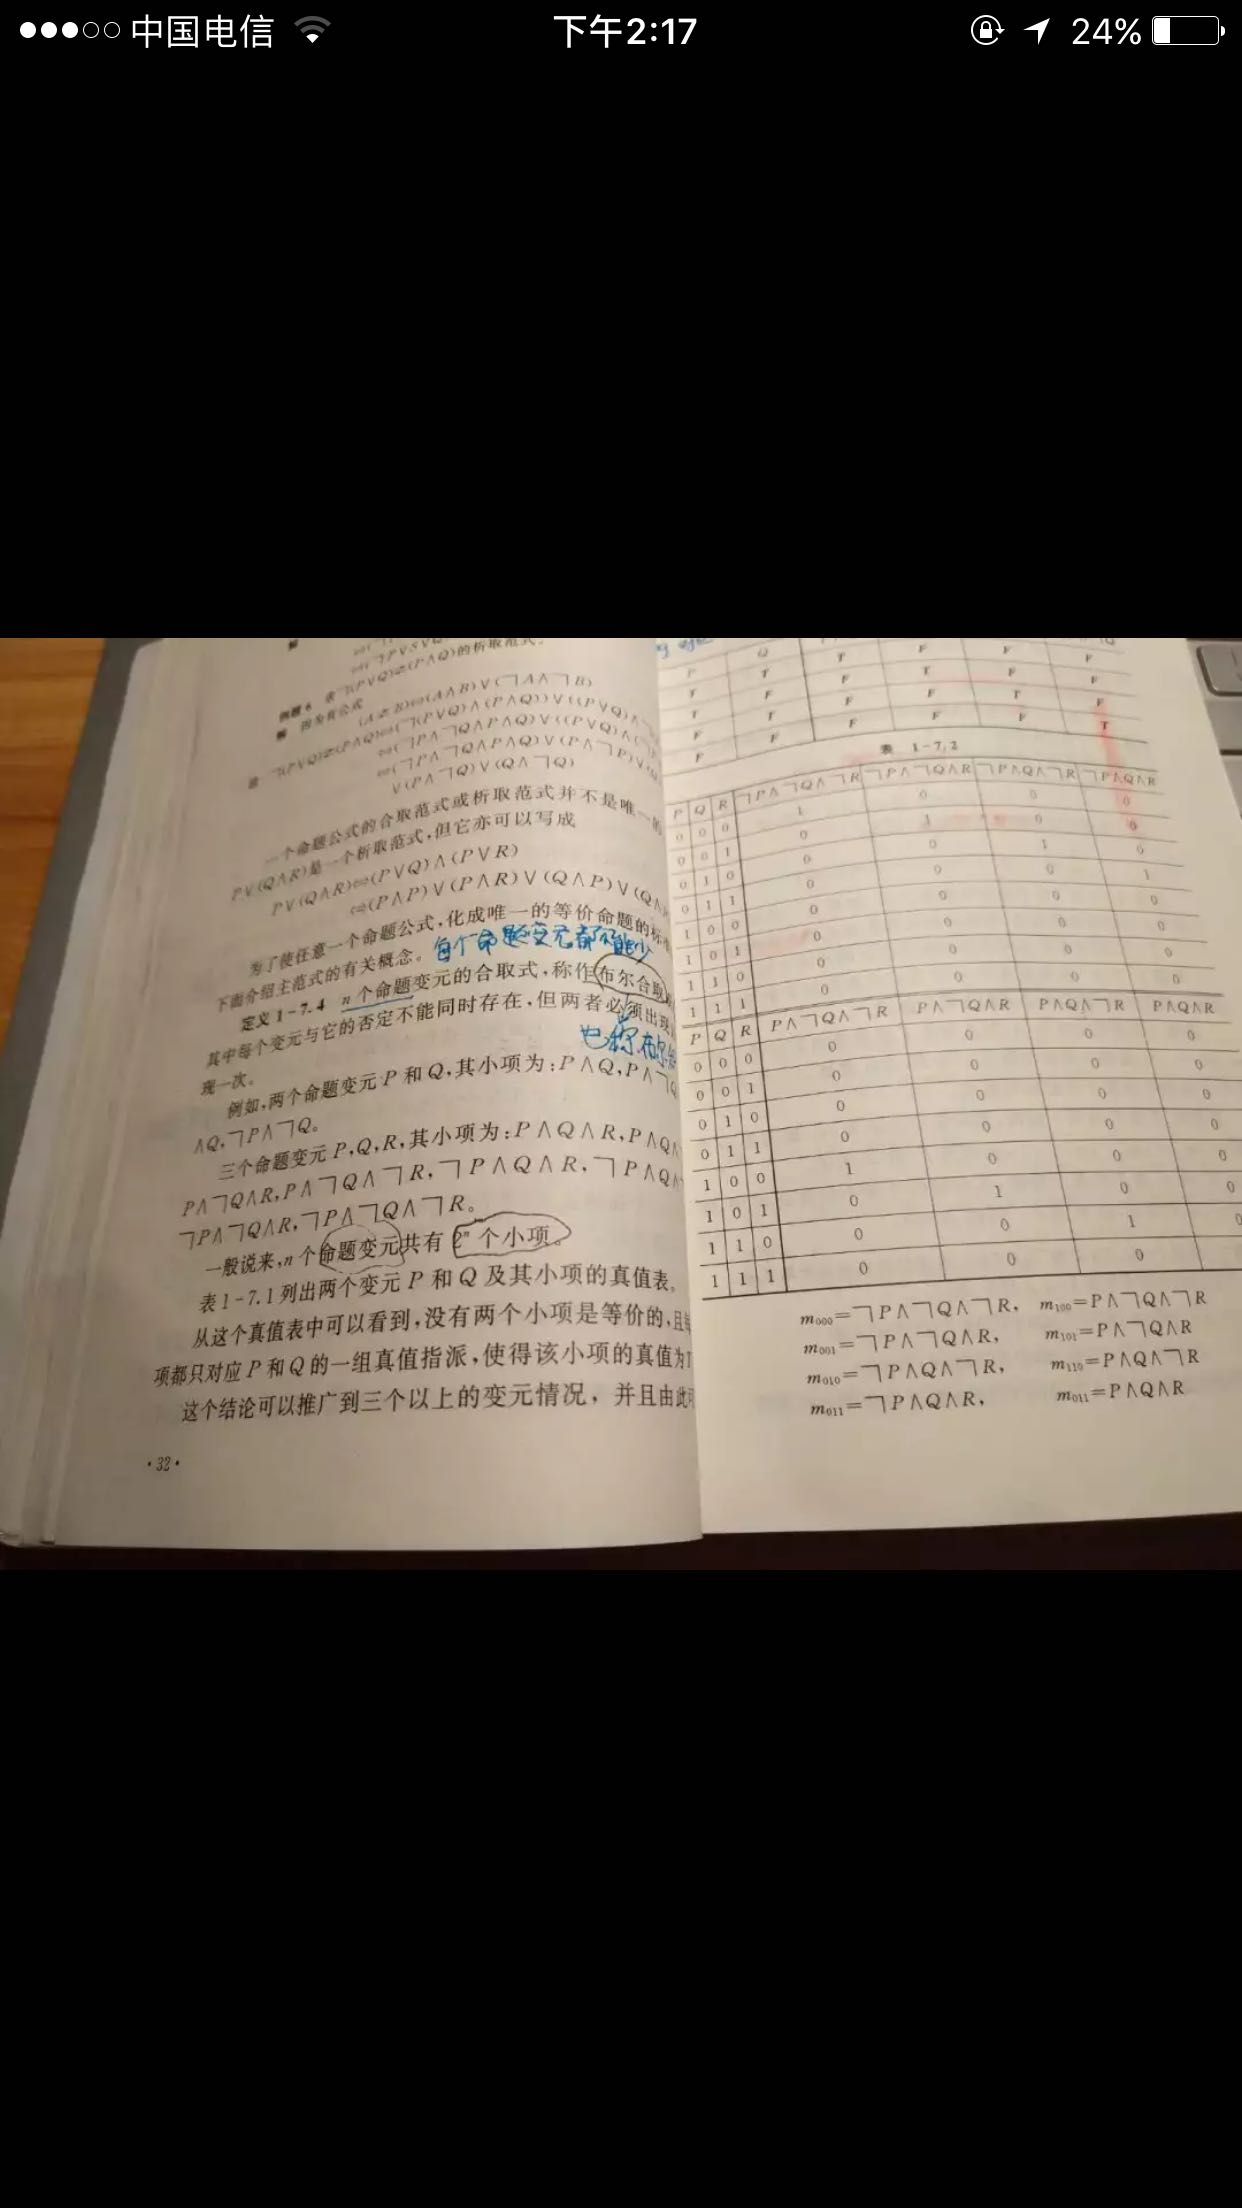 中国电信
下午2:17
24%
例题6 求┐(P∨Q)⇄(P∧Q)的析取范式。
解 因为有公式
(A⇄B)⇔(A∧B)∨(┐A∧┐B)
故 ┐(P∨Q)⇄(P∧Q)⇔(┐(P∨Q)∧(P∧Q))∨((P∨Q)∧
⇔(┐P∧┐Q∧P∧Q)∨((P∨Q)∧(┐
⇔(┐P∧┐Q∧P∧Q)∨(P∧┐P)∨(Q
∨(P∧┐Q)∨(Q∧┐Q)
一个命题公式的合取范式或析取范式并不是唯一的
P∨(Q∧R)是一个析取范式,但它亦可以写成
P∨(Q∧R)⇔(P∨Q)∧(P∨R)
⇔(P∧P)∨(P∧R)∨(Q∧P)∨(Q∧
为了使任意一个命题公式,化成唯一的等价命题的标
下面介绍主范式的有关概念。 每个命题变元都不能少
定义1-7.4 n个命题变元的合取式,称作布尔合取
其中每个变元与它的否定不能同时存在,但两者必须出现
也称布尔
现一次。
例如,两个命题变元P和Q,其小项为:P∧Q,P∧┐Q
∧Q,┐P∧┐Q。
三个命题变元P,Q,R,其小项为:P∧Q∧R,P∧Q∧
P∧┐Q∧R,P∧┐Q∧┐R,┐P∧Q∧R,┐P∧Q∧
┐P∧┐Q∧R,┐P∧┐Q∧┐R。
一般说来,n个命题变元共有2ⁿ个小项。
表1-7.1列出两个变元P和Q及其小项的真值表。
从这个真值表中可以看到,没有两个小项是等价的,且每
项都只对应P和Q的一组真值指派,使得该小项的真值为T
这个结论可以推广到三个以上的变元情况,并且由此可
·32·
P Q
T T T F F F
T F F T F F
F T F F T F
F F F F F T
表 1-7.2
P Q R ┐P∧┐Q∧┐R ┐P∧┐Q∧R ┐P∧Q∧┐R ┐P∧Q∧R
0 0 0 1 0 0 0
0 0 1 0 1 0 0
0 1 0 0 0 1 0
0 1 1 0 0 0 1
1 0 0 0 0 0 0
1 0 1 0 0 0 0
1 1 0 0 0 0 0
1 1 1 0 0 0 0
P Q R P∧┐Q∧┐R P∧┐Q∧R P∧Q∧┐R P∧Q∧R
0 0 0 0 0 0 0
0 0 1 0 0 0 0
0 1 0 0 0 0 0
0 1 1 0 0 0 0
1 0 0 1 0 0 0
1 0 1 0 1 0 0
1 1 0 0 0 1 0
1 1 1 0 0 0
m₀₀₀=┐P∧┐Q∧┐R, m₁₀₀=P∧┐Q∧┐R
m₀₀₁=┐P∧┐Q∧R, m₁₀₁=P∧┐Q∧R
m₀₁₀=┐P∧Q∧┐R, m₁₁₀=P∧Q∧┐R
m₀₁₁=┐P∧Q∧R, m₀₁₁=P∧Q∧R